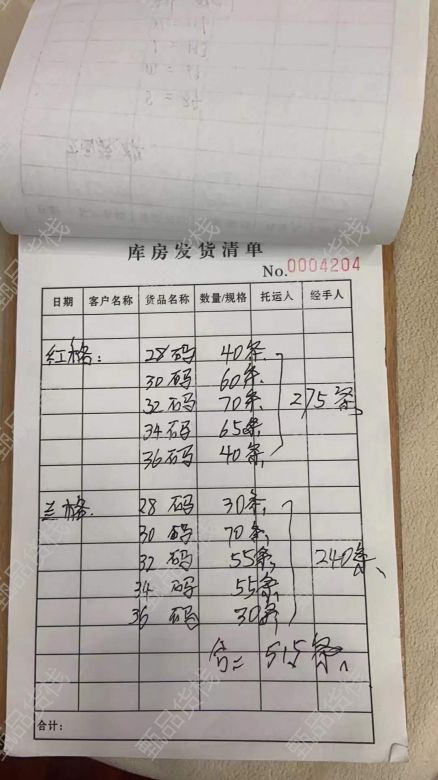 库房发货清单
No.0004204
日期 客户名称 货品名称 数量/规格 托运人 经手人
红格: 28码 40条
30码 60条
32码 70条 275条
34码 65条
36码 40条
兰格 28码 30条
30码 70条
32码 55条 240条
34码 55条
36码 30条
合= 515条
合计:
甄品货栈